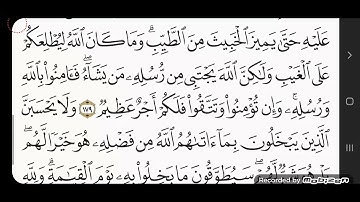 عَلَيْهِ حَتَّىٰ يَمِيزَ ٱلْخَبِيثَ مِنَ ٱلطَّيِّبِۗ وَمَا كَانَ ٱللَّهُ لِيُطْلِعَكُمْ
عَلَى ٱلْغَيْبِ وَلَٰكِنَّ ٱللَّهَ يَجْتَبِى مِن رُّسُلِهِۦ مَن يَشَآءُۖ فَـَٔامِنُوا۟ بِٱللَّهِ
وَرُسُلِهِۦۚ وَإِن تُؤْمِنُوا۟ وَتَتَّقُوا۟ فَلَكُمْ أَجْرٌ عَظِيمٌ ١٧٩ وَلَا يَحْسَبَنَّ
ٱلَّذِينَ يَبْخَلُونَ بِمَآ ءَاتَىٰهُمُ ٱللَّهُ مِن فَضْلِهِۦ هُوَ خَيْرًا لَّهُمۖ
بَلْ هُوَ شَرٌّ لَّهُمْۖ سَيُطَوَّقُونَ مَا بَخِلُوا۟ بِهِۦ يَوْمَ ٱلْقِيَٰمَةِۗ وَلِلَّهِ
Recorded by